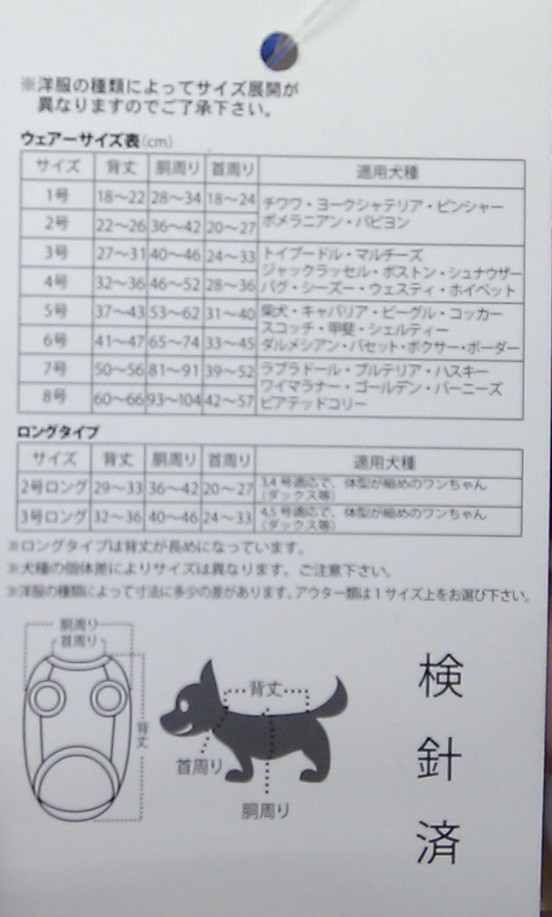 ※洋服の種類によってサイズ展開が
異なりますのでご了承下さい。
ウェアーサイズ表(cm)
サイズ 背丈 胴周り 首周り 適用犬種
1号 18〜22 28〜34 18〜24 チワワ・ヨークシャテリア・ピンシャー
2号 22〜26 36〜42 20〜27 ポメラニアン・パピヨン
3号 27〜31 40〜46 24〜33 トイプードル・マルチーズ
ジャックラッセル・ボストン・シュナウザー
4号 32〜36 46〜52 28〜36 パグ・シーズー・ウェスティ・ホイペット
5号 37〜43 53〜62 31〜40 柴犬・キャバリア・ビーグル・コッカー
スコッチ・甲斐・シェルティー
6号 41〜47 65〜74 33〜45 ダルメシアン・バセット・ボクサー・ボーダー
7号 50〜56 81〜91 39〜52 ラブラドール・ブルテリア・ハスキー
ワイマラナー・ゴールデン・バーニーズ
8号 60〜66 93〜104 42〜57 ビアデッドコリー
ロングタイプ
サイズ 背丈 胴周り 首周り 適用犬種
2号ロング 29〜33 36〜42 20〜27 3,4 号適応で、体型が細めのワンちゃん
(ダックス等)
3号ロング 32〜36 40〜46 24〜33 4,5 号適応で、体型が細めのワンちゃん
(ダックス等)
※ロングタイプは背丈が長めになっています。
※犬種の個体差によりサイズは異なります。ご注意下さい。
※洋服の種類によって寸法に多少の差があります。アウター類は1サイズ上をお選び下さい。
胴周り
首周り
背丈
背丈
首周り
胴周り
検
針
済